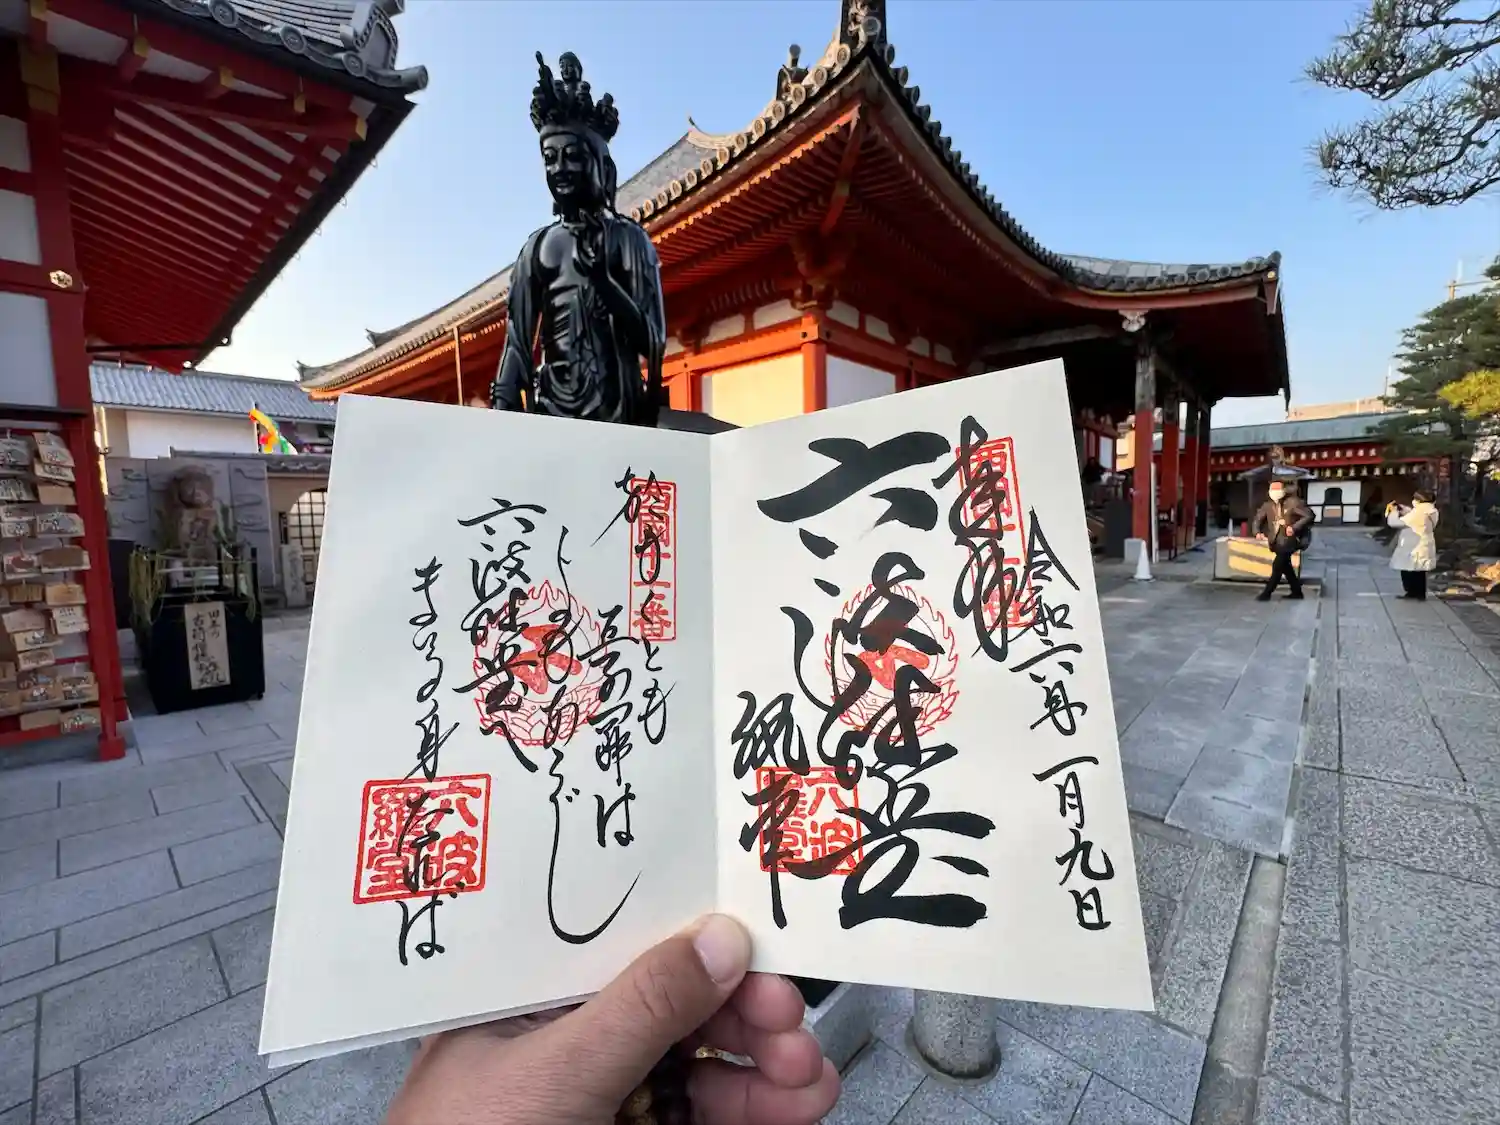 奉拝
西国十七番
令和六年一月九日
六波羅堂
六波羅堂
西国十七番
重くとも
五の罪は
よもあらじ
六波羅堂へ
まいる身なれば
六波羅堂